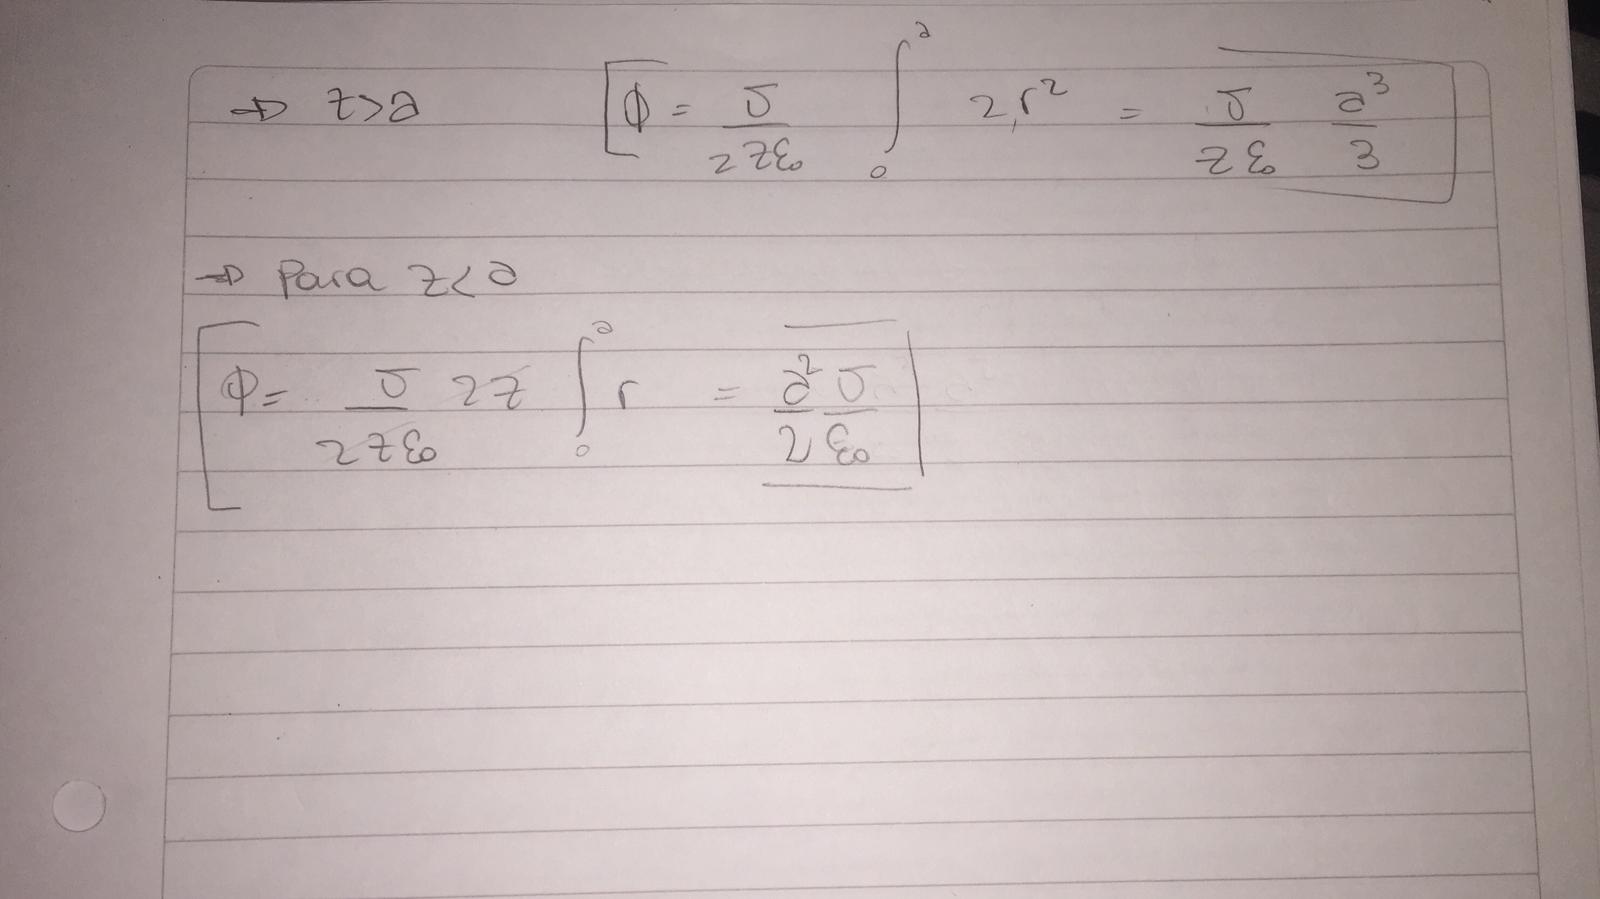 → z>a  ϕ = σ/(2zε₀) ∫₀ᵃ 2r² = σ/(zε₀) a³/3
→ Para z<a
ϕ = σ/(2zε₀) 2z ∫₀ᵃ r = a²/2 σ/ε₀